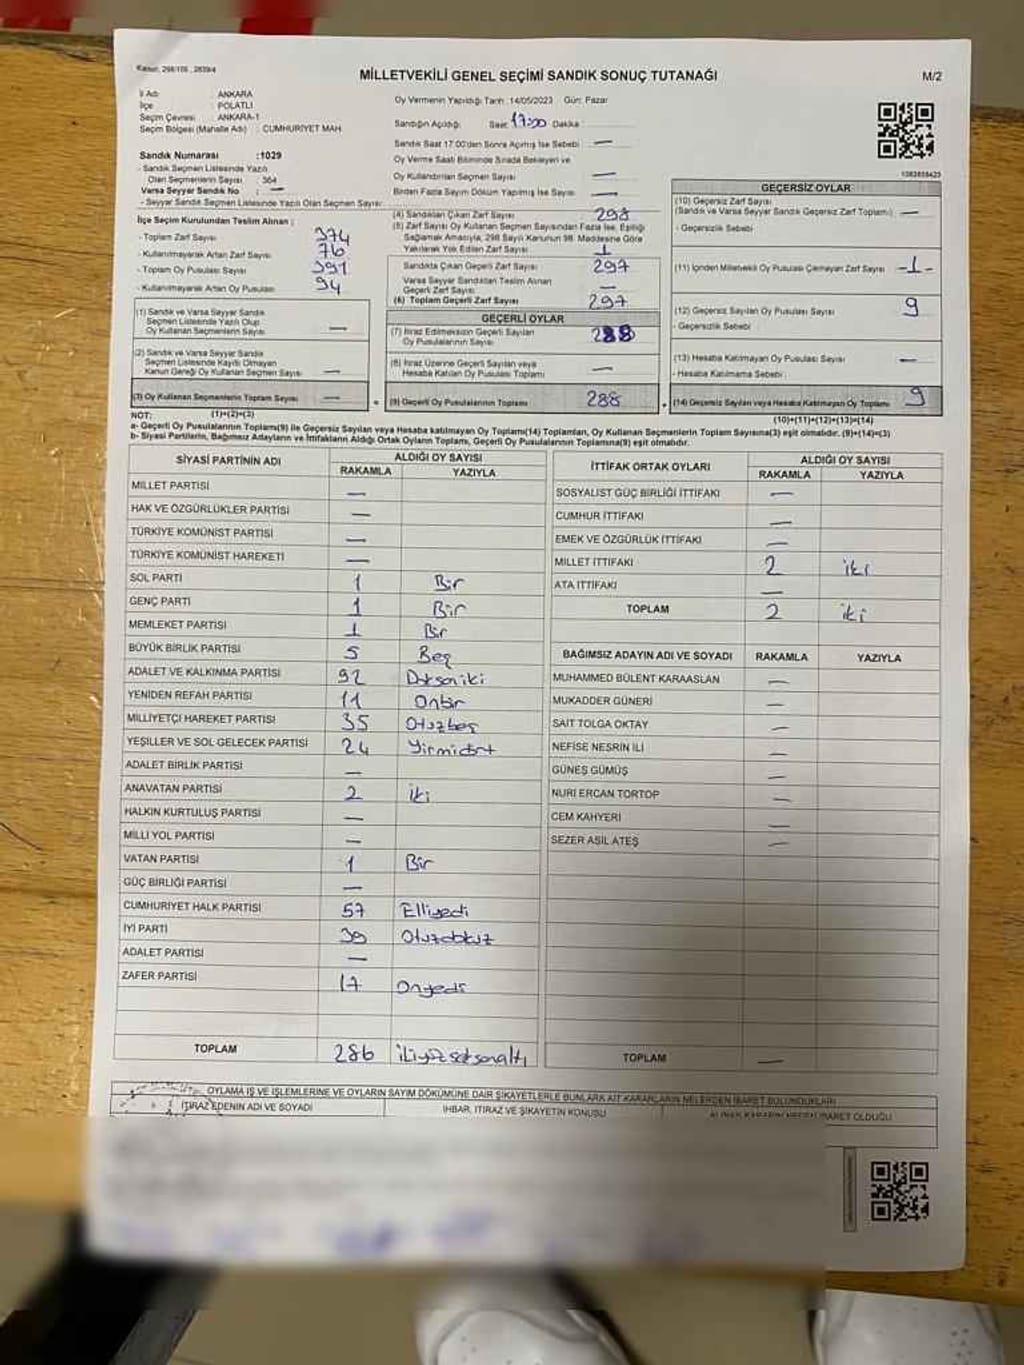 Kanun: 298/105 , 2839/4
MİLLETVEKİLİ GENEL SEÇİMİ SANDIK SONUÇ TUTANAĞI
M/2
İl Adı : ANKARA
İlçe : POLATLI
Seçim Çevresi : ANKARA-1
Seçim Bölgesi (Mahalle Adı) : CUMHURİYET MAH.
Oy Vermenin Yapıldığı Tarih :14/05/2023 Gün: Pazar
Sandığın Açıldığı: Saat: 17:00 Dakika :
Sandık Saat 17:00'den Sonra Açılmış İse Sebebi : —
Oy Verme Saati Bitiminde Sırada Bekleyen ve
Oy Kullandırılan Seçmen Sayısı : —
Birden Fazla Sayım Döküm Yapılmış İse Sayısı : —
Sandık Numarası :1029
- Sandık Seçmen Listesinde Yazılı
Olan Seçmenlerin Sayısı : 364
Varsa Seyyar Sandık No : —
- Seyyar Sandık Seçmen Listesinde Yazılı Olan Seçmen Sayısı:
İlçe Seçim Kurulundan Teslim Alınan :
- Toplam Zarf Sayısı : 374
- Kullanılmayarak Artan Zarf Sayısı : 76
- Toplam Oy Pusulası Sayısı : 391
- Kullanılmayarak Artan Oy Pusulası : 94
(1) Sandık ve Varsa Seyyar Sandık
Seçmen Listesinde Yazılı Olup
Oy Kullanan Seçmenlerin Sayısı —
(2) Sandık ve Varsa Seyyar Sandık
Seçmen Listesinde Kaydı Olmayan
Kanun Gereği Oy Kullanan Seçmen Sayısı —
(3) Oy Kullanan Seçmenlerin Toplam Sayısı —
(1)+(2)=(3)
(4) Sandıktan Çıkan Zarf Sayısı 298
(5) Zarf Sayısı Oy Kullanan Seçmen Sayısından Fazla İse, Eşitliği
Sağlamak Amacıyla, 298 Sayılı Kanunun 98. Maddesine Göre
Yakılarak Yok Edilen Zarf Sayısı 1
Sandıkta Çıkan Geçerli Zarf Sayısı 297
Varsa Seyyar Sandıktan Teslim Alınan
Geçerli Zarf Sayısı —
(6) Toplam Geçerli Zarf Sayısı 297
GEÇERLİ OYLAR
(7) İtiraz Edilmeksizin Geçerli Sayılan
Oy Pusulalarının Sayısı 288
(8) İtiraz Üzerine Geçerli Sayılan veya
Hesaba Katılan Oy Pusulası Toplamı —
(9) Geçerli Oy Pusulalarının Toplamı 288
GEÇERSİZ OYLAR
(10) Geçersiz Zarf Sayısı
(Sandık ve Varsa Seyyar Sandık Geçersiz Zarf Toplamı) —
- Geçersizlik Sebebi
(11) İçinden Milletvekili Oy Pusulası Çıkmayan Zarf Sayısı -1-
(12) Geçersiz Sayılan Oy Pusulası Sayısı 9
- Geçersizlik Sebebi :
(13) Hesaba Katılmayan Oy Pusulası Sayısı —
- Hesaba Katılmama Sebebi :
(14) Geçersiz Sayılan veya Hesaba Katılmayan Oy Toplamı 9
(10)+(11)+(12)+(13)=(14)
NOT:
a- Geçerli Oy Pusulalarının Toplamı(9) ile Geçersiz Sayılan veya Hesaba katılmayan Oy Toplamı(14) Toplamları, Oy Kullanan Seçmenlerin Toplam Sayısına(3) eşit olmalıdır. (9)+(14)=(3)
b- Siyasi Partilerin, Bağımsız Adayların ve İttifakların Aldığı Ortak Oyların Toplamı, Geçerli Oy Pusulalarının Toplamına(9) eşit olmalıdır.
SİYASİ PARTİNİN ADI ALDIĞI OY SAYISI
RAKAMLA YAZIYLA
MİLLET PARTİSİ —
HAK VE ÖZGÜRLÜKLER PARTİSİ —
TÜRKİYE KOMÜNİST PARTİSİ —
TÜRKİYE KOMÜNİST HAREKETİ —
SOL PARTİ 1 Bir
GENÇ PARTİ 1 Bir
MEMLEKET PARTİSİ 1 Bir
BÜYÜK BİRLİK PARTİSİ 5 Beş
ADALET VE KALKINMA PARTİSİ 92 Doksaniki
YENİDEN REFAH PARTİSİ 11 Onbir
MİLLİYETÇİ HAREKET PARTİSİ 35 Otuzbeş
YEŞİLLER VE SOL GELECEK PARTİSİ 24 Yirmidört
ADALET BİRLİK PARTİSİ —
ANAVATAN PARTİSİ 2 iki
HALKIN KURTULUŞ PARTİSİ —
MİLLİ YOL PARTİSİ —
VATAN PARTİSİ 1 Bir
GÜÇ BİRLİĞİ PARTİSİ —
CUMHURİYET HALK PARTİSİ 57 Elliyedi
İYİ PARTİ 39 Otuzdokuz
ADALET PARTİSİ —
ZAFER PARTİSİ 17 Onyedi
TOPLAM 286 ikiyüzseksenaltı
İTTİFAK ORTAK OYLARI ALDIĞI OY SAYISI
RAKAMLA YAZIYLA
SOSYALİST GÜÇ BİRLİĞİ İTTİFAKI —
CUMHUR İTTİFAKI —
EMEK VE ÖZGÜRLÜK İTTİFAKI —
MİLLET İTTİFAKI 2 iki
ATA İTTİFAKI —
TOPLAM 2 iki
BAĞIMSIZ ADAYIN ADI VE SOYADI RAKAMLA YAZIYLA
MUHAMMED BÜLENT KARAASLAN —
MUKADDER GÜNERİ —
SAİT TOLGA OKTAY —
NEFİSE NESRİN İLİ —
GÜNEŞ GÜMÜŞ —
NURİ ERCAN TORTOP —
CEM KAHYERİ —
SEZER ASİL ATEŞ —
TOPLAM —
OYLAMA İŞ VE İŞLEMLERİNE VE OYLARIN SAYIM DÖKÜMÜNE DAİR ŞİKAYETLERLE BUNLARA AİT KARARLARIN NELERDEN İBARET BULUNDUKLARI
İTİRAZ EDENİN ADI VE SOYADI İHBAR, İTİRAZ VE ŞİKAYETİN KONUSU